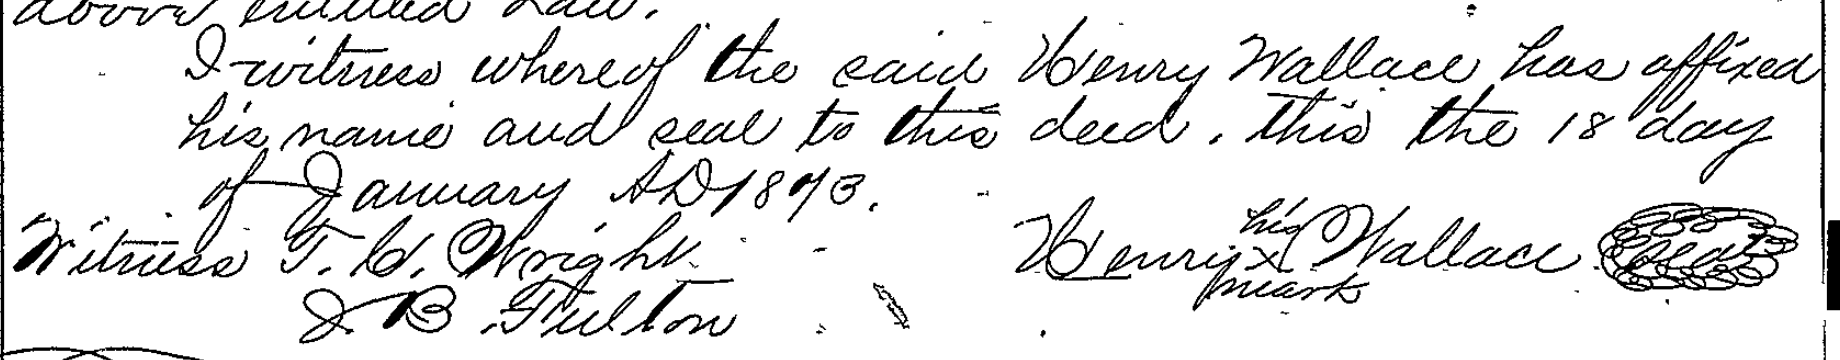 above entitled Law.
I witness whereof the said Henry Wallace has affixed
his name and seal to this deed, this the 18 day
of January AD 1893.
Witness T. H. Wright Henry his x mark Wallace Seal
J. B. Fulton